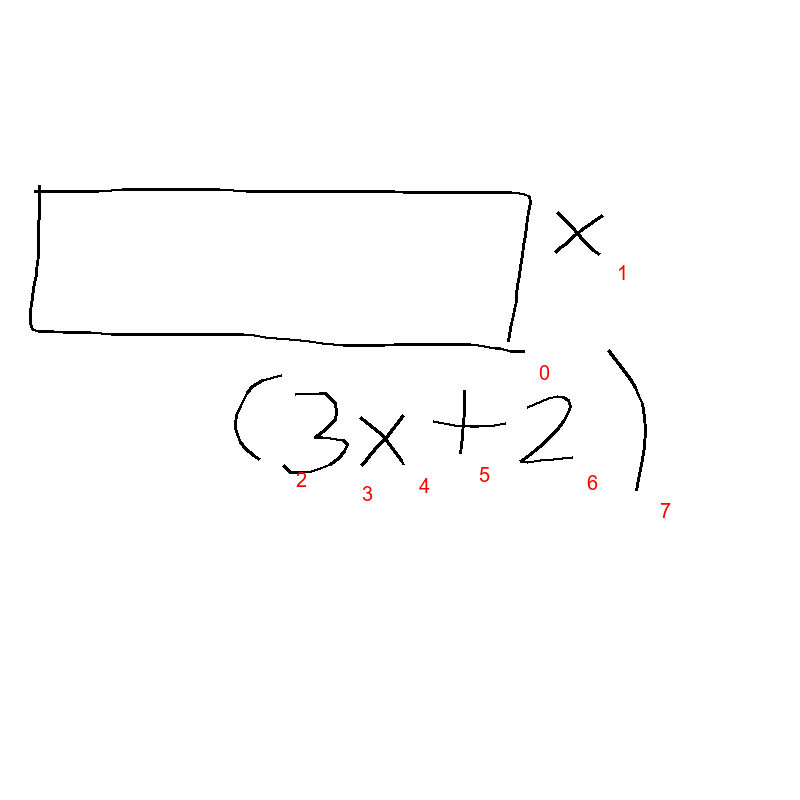 x
1
0
(3x+2)
2 3 4 5 6 7